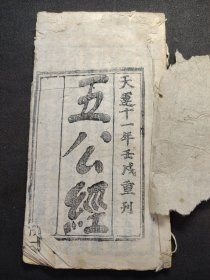 天運十一年壬戌重刊
五公經